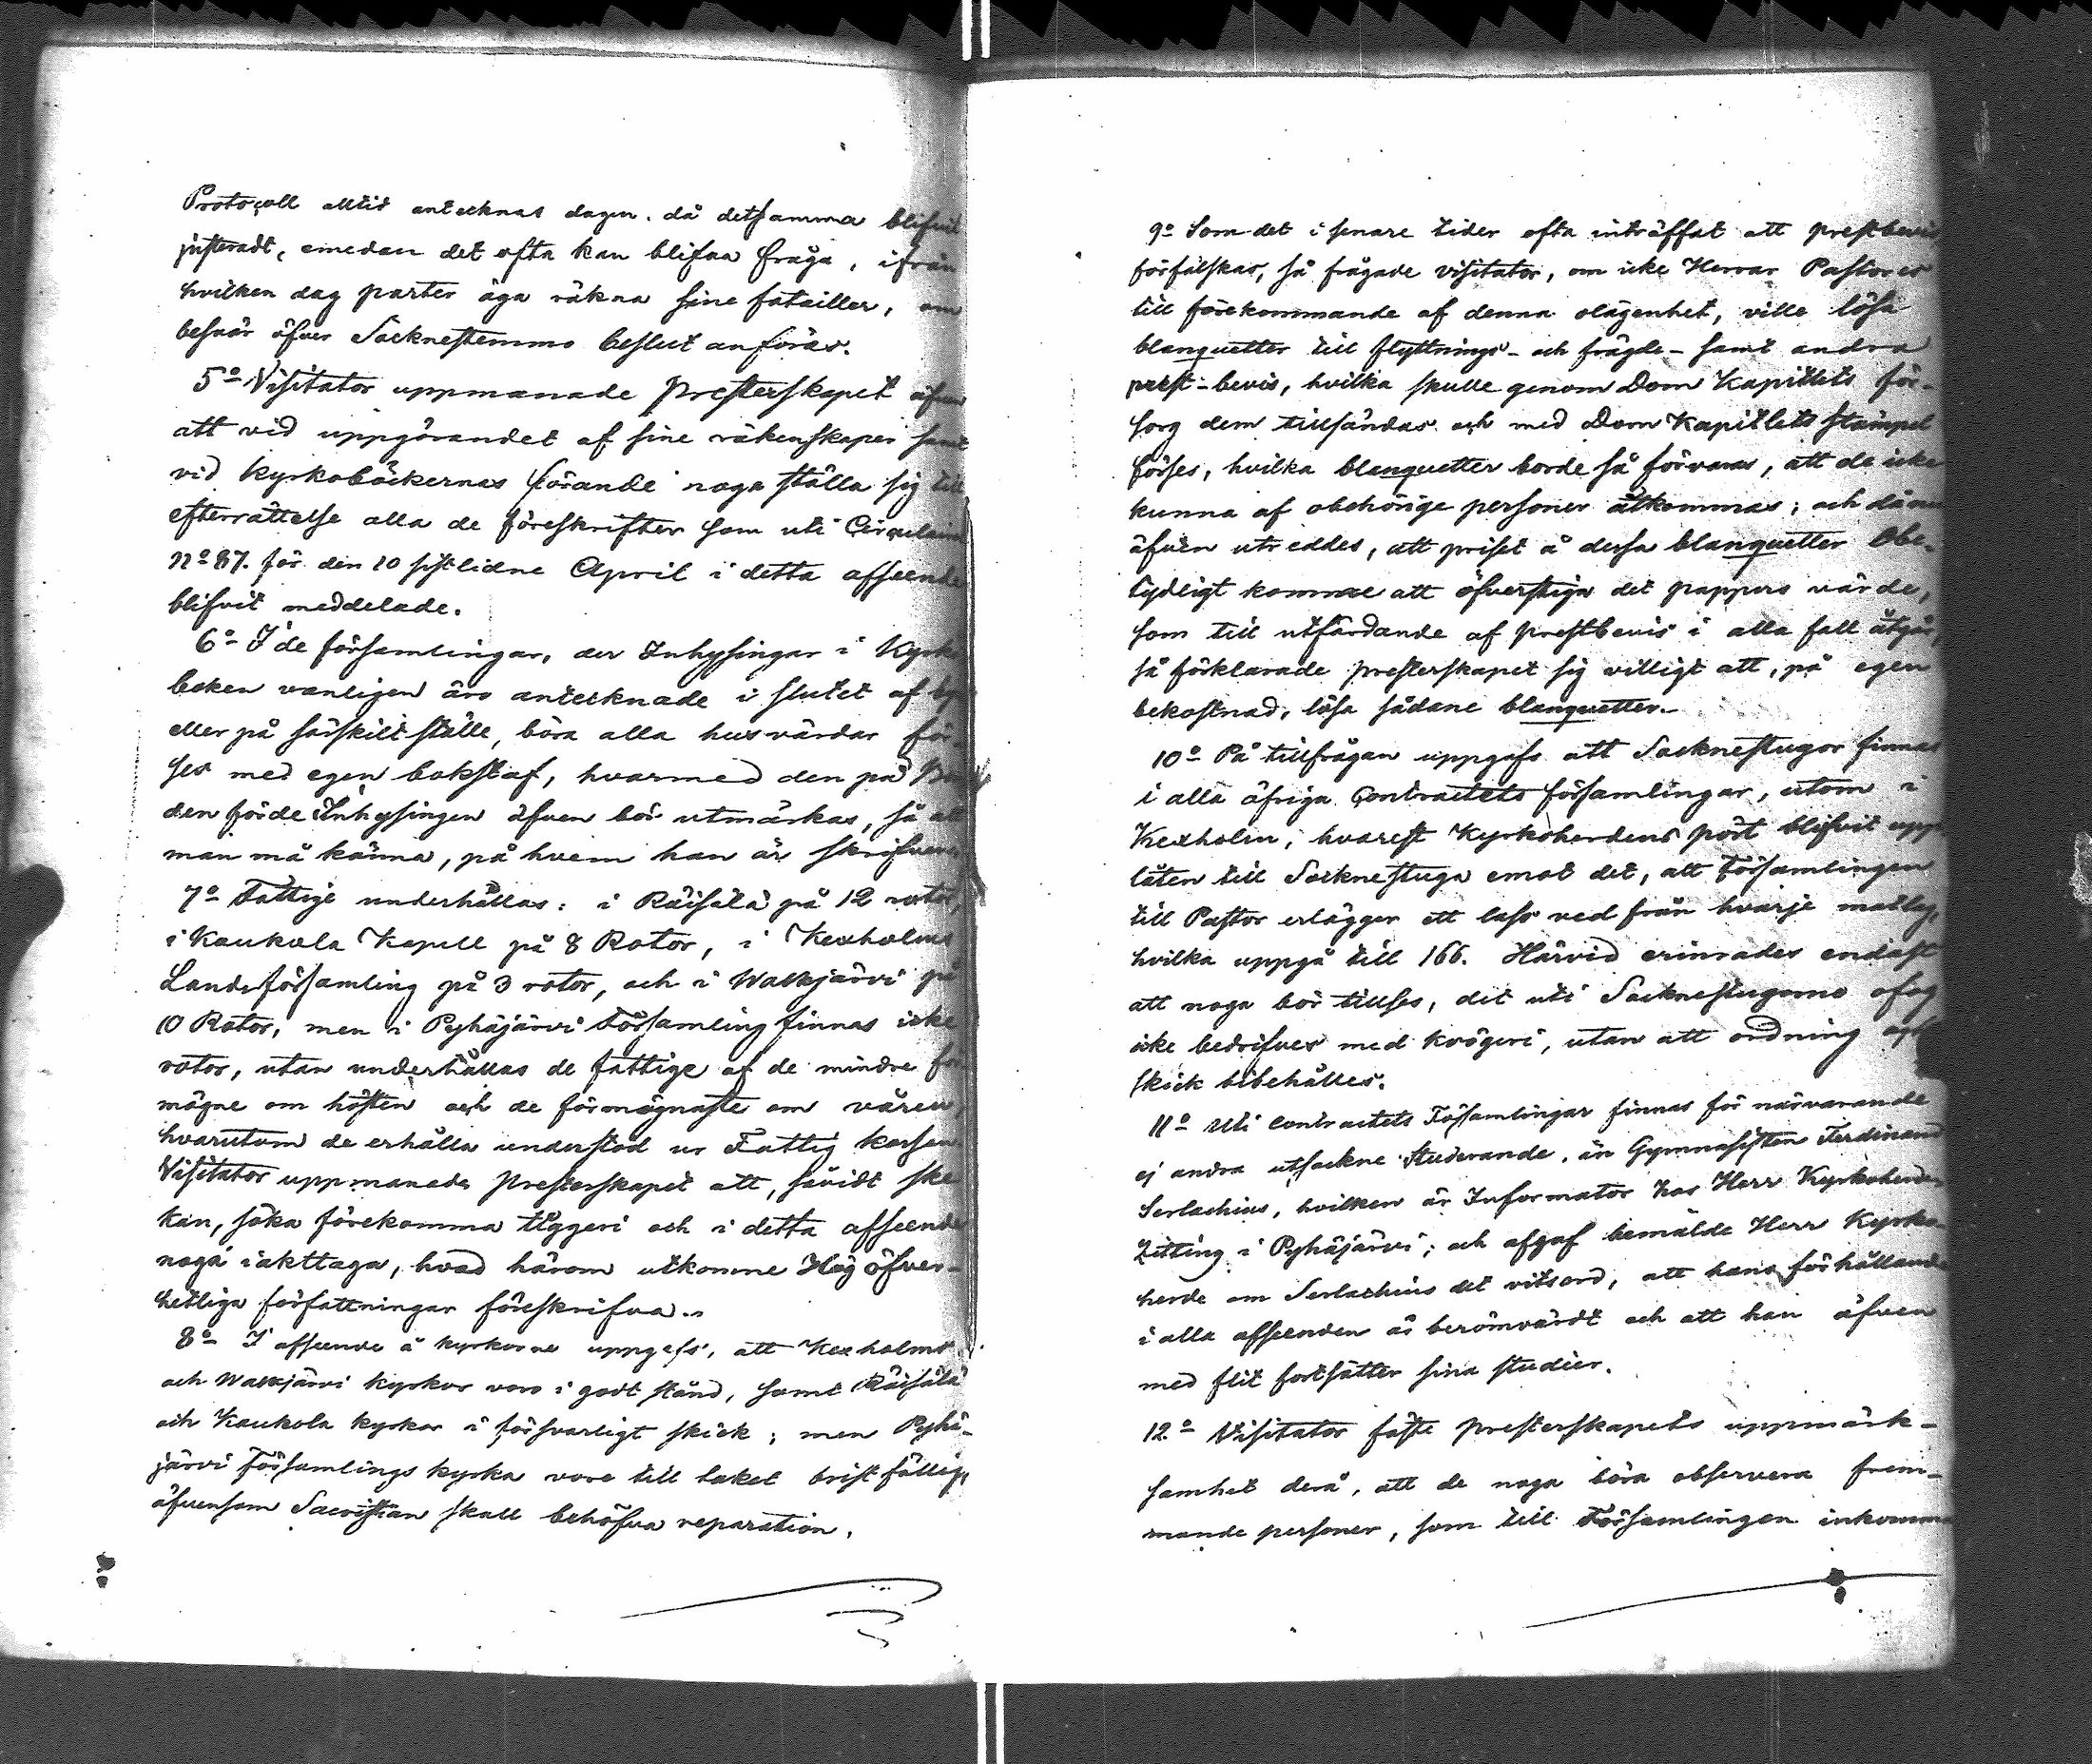 Protocoll alltid antecknas dagen, då detsamma blifvit
justeradt, emedan det ofta kan blifva fråga, ifrån
hvilken dag parter äga räkna sine fatailler, om
besvär öfver Socknestemmo beslut anföras.
5º Visitator uppmanade Presterskapet äfven
att vid uppgörandet af sine räkenskaper samt
vid Kyrkoböckernas förande noga ställa sig till
efterrättelse alla de föreskrifter som uti Circulairet
Nº 87. för den 10 sistlidne April i detta afseende
blifvit meddelade.
6º I de församlingar, der Inhysingar i Kyrko
boken vanligen äro antecknade i slutet af by
eller på särskilt ställe, böra alla husvärdar för-
ses med egen bokstaf, hvarmed den på
den förde Inhysingen äfven bör utmärkas, så att
man må känna, på hvem han är skrifven
7º Fattige underhållas: i Räisälä på 12 rotor,
i Kaukola Kapell på 8 Rotor, i Kexholms
Landsförsamling på 3 rotor, och i Walkjärvi på
10 Rotor, men i Pyhäjärvi Församling finnas icke
rotor, utan underhållas de fattige af de mindre för
mögne om hösten och de förmögnaste om våren,
hvarutom de erhålla understöd ur Fattig kassan
Visitator uppmanade Presterskapet att, såvidt ske
kan, söka förekomma tiggeri och i detta afseende
noga iakttaga, hvad härom utkomne Hög öfver-
hetliga författningar föreskrifva.
8º I afseende å kyrkorne uppgafs, att Kexholms
och Walkjärvi Kyrkor voro i godt stånd, samt Räisälä
och Kaukola kyrkor i försvarligt skick; men Pyhä-
järvi Församlings kyrka vore till taket bristfällig,
äfvensom Sacristian skall behöfva reparation.
9º Som det i senare tider ofta inträffat att prestbevis
förfalskas, så frågade visitator, om icke Herrar Pastores
till förekommande af denna olägenhet, ville lösa
blanquetter till flyttnings- och frägde- samt andra
prest-bevis, hvilka skulle genom Dom Kapitlets för-
sorg dem tillsändas och med Dom Kapitlets stämpel
förses, hvilka blanquetter borde så förvaras, att de icke
kunna af obehörige personer åtkommas; och då nu
äfven utreddes, att priset å dessa blanquetter obe-
tydligt komme att öfverstiga det pappers värde,
som till utfärdande af prestbevis i alla fall åtgår,
så förklarade presterskapet sig villigt att, på egen
bekostnad, lösa sådane blanquetter.
10º På tillfrågan uppgafs att Socknestugor finnas
i alla öfriga Contractets församlingar, utom i
Kexholm, hvarest Kyrkoherdens pört blifvit upp
låten till Socknestuga emot det, att Församlingen
till Pastor erlägger ett lass ved från hvarje matlag,
hvilka uppgå till 166. Härvid erinrades endast
att noga bör tillses, det uti Socknestugorne ofog
icke bedrifves med krögeri, utan att ordning och
skick bibehålles.
11º Uti contractets Församlingar finnas för närvarande
ej andra utsockne Studerande, än Gymnasisten Ferdinand
Serlachius, hvilken är Informator hos Herr Kyrkoherden
Zitting i Pyhäjärvi; och afgaf bemälde Herr Kyrko-
herde om Serlachius det vitsord, att hans förhållande
i alla afseenden är berömvärdt och att han äfven
med flit fortsätter sina studier.
12.º Visitator fäste presterskapets uppmärk-
samhet derå, att de noga böra observera frem-
mande personer, som till Församlingen inkomma